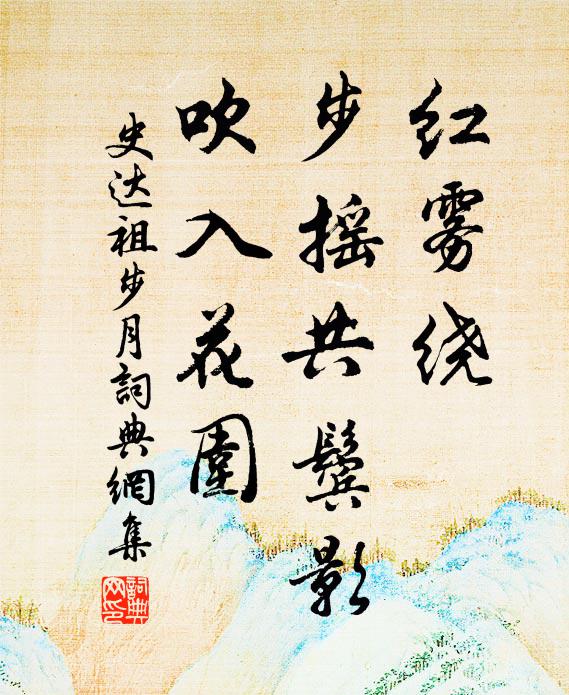 红雾绕
步摇共鬓影
吹入花围
史达祖步月詞典網集
詞典网印